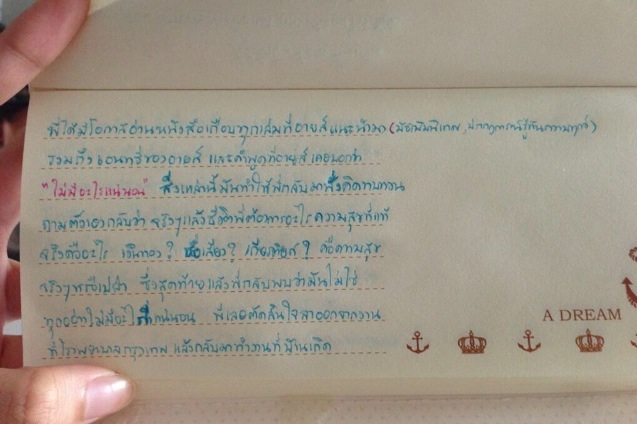 พี่ได้มีโอกาสอ่านหนังสือเกือบทุกเล่มที่อายส์แนะนำมา (
รวมถึงเอนทรี่ของอายส์ และคำพูดที่อายส์เคยบอกว่า
"ไม่มีอะไรแน่นอน" สิ่งเหล่านี้มันทำให้พี่กลับมานั่งคิดทบทวน
ถามตัวเองกลับว่า จริงๆแล้วชีวิตพี่ต้องการอะไร ความสุขที่แท้
จริงคืออะไร เงินทอง? ชื่อเสียง? เกียรติยศ? คือความสุข
จริงๆหรือเปล่า ซึ่งสุดท้ายแล้วพี่กลับพบว่ามันไม่ใช่
ทุกอย่างไม่มีอะไรแน่นอน พี่เลยตัดสินใจลาออกจากงาน
ที่โรงพยาบาลกรุงเทพ แล้วกลับมาทำงานที่บ้านเกิด
A DREAM